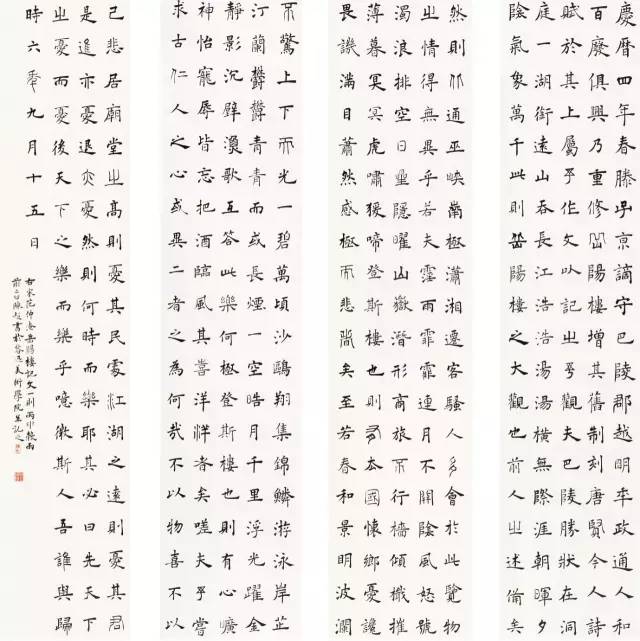 慶曆四年春滕子京謫守巴陵郡越明年政通人和
百廢俱興乃重修岳陽樓增其舊制刻唐賢今人詩
賦於其上屬予作文以記之予觀夫巴陵勝狀在洞
庭一湖銜遠山吞長江浩浩湯湯橫無際涯朝暉夕
陰氣象萬千此則岳陽樓之大觀也前人之述備矣
然則北通巫峽南極瀟湘遷客騷人多會於此覽物
之情得無異乎若夫霪雨霏霏連月不開陰風怒號
濁浪排空日星隱曜山嶽潛形商旅不行檣傾楫摧
薄暮冥冥虎嘯猿啼登斯樓也則有去國懷鄉憂讒
畏譏滿目蕭然感極而悲者矣至若春和景明波瀾
不驚上下天光一碧萬頃沙鷗翔集錦鱗游泳岸芷
汀蘭欝欝青青而或長煙一空皓月千里浮光躍金
靜影沉璧漁歌互答此樂何極登斯樓也則有心曠
神怡寵辱皆忘把酒臨風其喜洋洋者矣嗟夫予嘗
求古仁人之心或異二者之為何哉不以物喜不以
己悲居廟堂之高則憂其民處江湖之遠則憂其君
是進亦憂退亦憂然則何時而樂耶其必曰先天下
之憂而憂後天下之樂而樂乎噫微斯人吾誰與歸
時六年九月十五日
右宋范仲淹岳陽樓記文一則丙申穀雨
前二日陳書於美術學院並記之